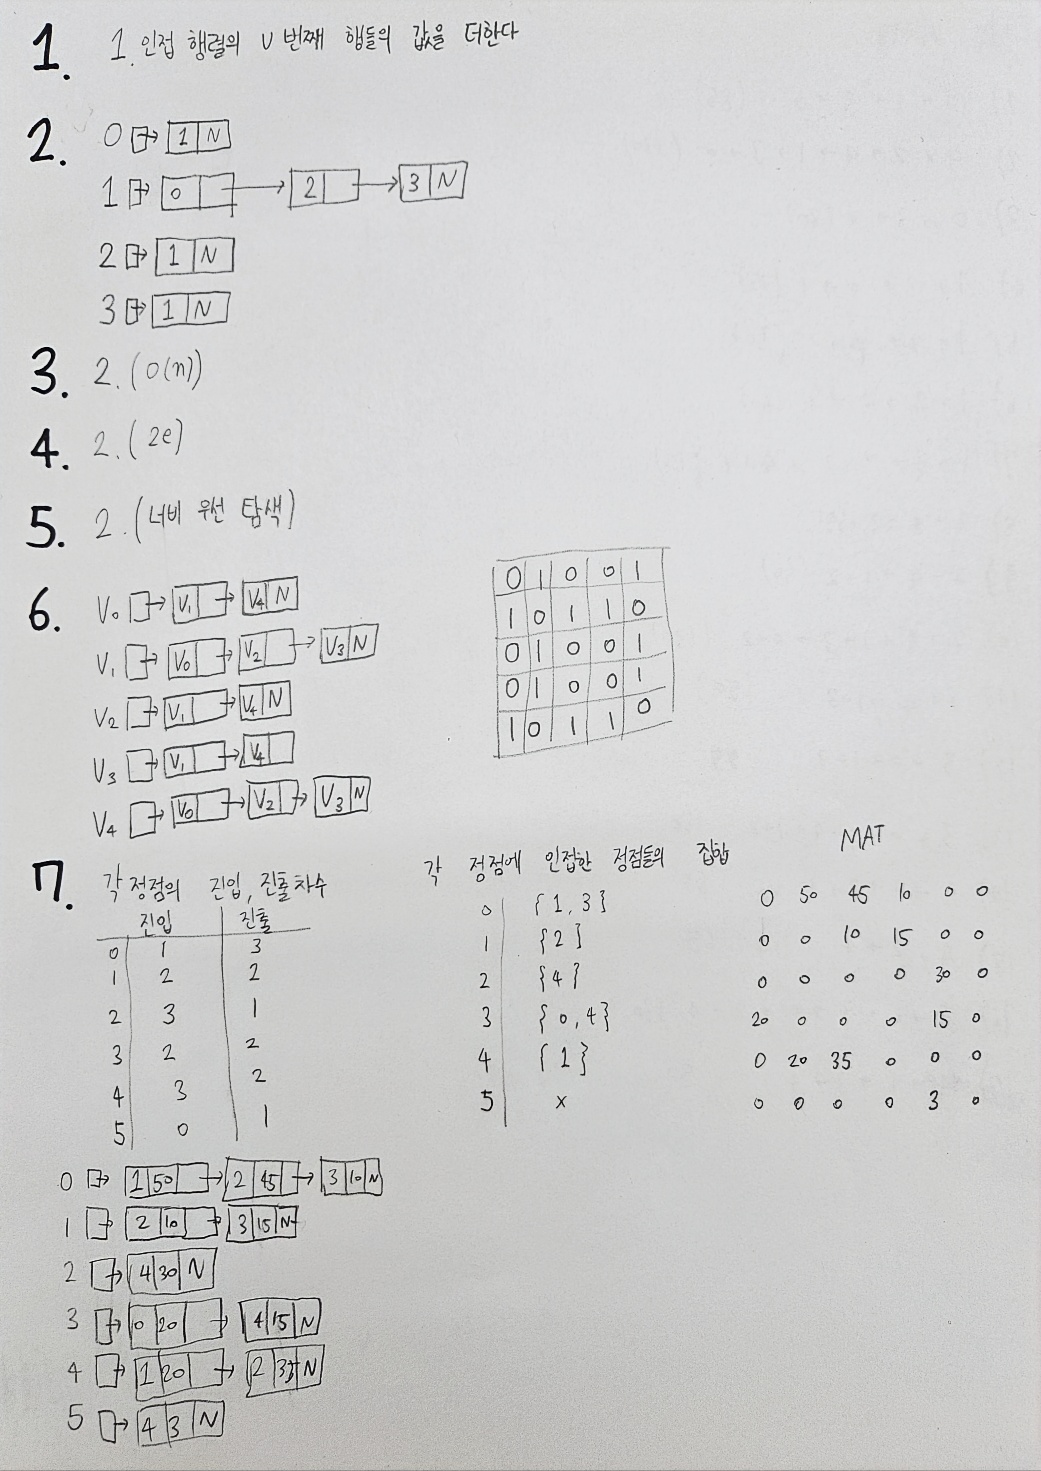 1. 1. 인접 행렬의 v 번째 행들의 값을 더한다
2. 0 1 N
1 0 2 3 N
2 1 N
3 1 N
3. 2. (O(n))
4. 2. (2e)
5. 2. (너비 우선 탐색)
6. V0 V1 V4 N
V1 V0 V2 V3 N
V2 V1 V4 N
V3 V1 V4
V4 V0 V2 V3 N
0 1 0 0 1
1 0 1 1 0
0 1 0 0 1
0 1 0 0 1
1 0 1 1 0
7. 각 정점의 진입, 진출차수
진입 진출
0 1 3
1 2 2
2 3 1
3 2 2
4 3 2
5 0 1
각 정점에 인접한 정점들의 집합
0 {1, 3}
1 {2}
2 {4}
3 {0, 4}
4 {1}
5 x
MAT
0 50 45 10 0 0
0 0 10 15 0 0
0 0 0 0 30 0
20 0 0 0 15 0
0 20 35 0 0 0
0 0 0 0 3 0
0 1 50 2 45 3 10 N
1 2 10 3 15 N
2 4 30 N
3 0 20 4 15 N
4 1 20 2 35 N
5 4 3 N